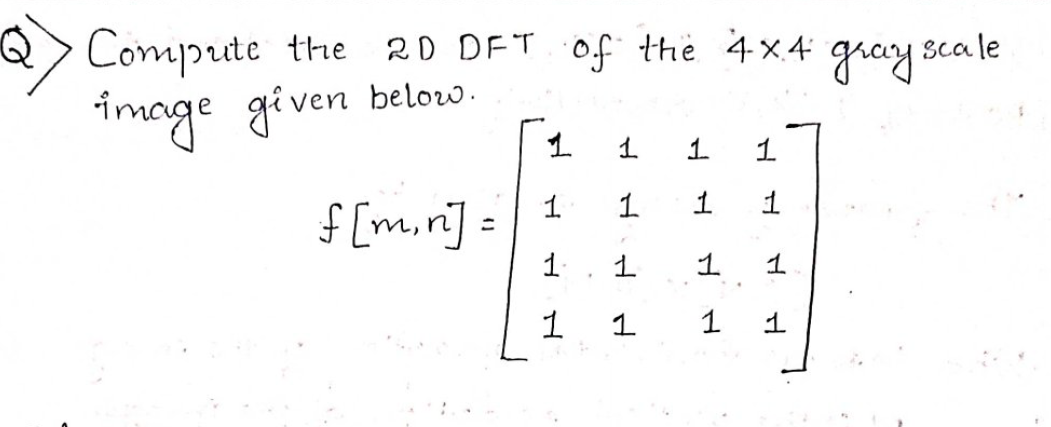 Q> Compute the 2D DFT of the 4×4 gray scale
image given below.
1 1 1 1
f[m,n] = 1 1 1 1
1 1 1 1
1 1 1 1